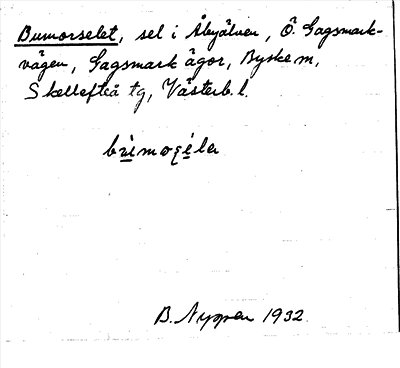 Bumorselet, sel i Åbyälven, Ö. Gagsmark-
vägen, Gagsmark ägor, Byske m,
Skellefteå tg, Västerb. l.
B. Nyman 1932